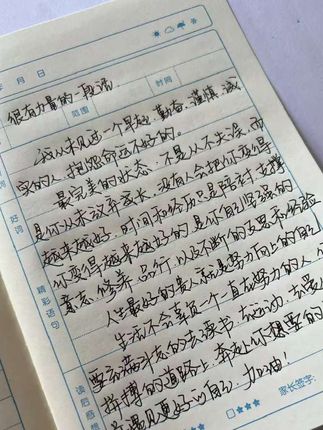 年 月 日
很有力量的一段话
范围
时间
我从未见过一个早起、勤奋、谨慎、诚
实的人抱怨命运不好的。
最完美的状态，不是从不失误，而
是你从未放弃成长。没有人会把你变得
越来越好，时间和经历只是陪衬。支撑
你变得越来越好的是你自己坚强的
意志、修养、品行、以及不断的反思和经验
人生最好的贵人就是努力向上的自己
生活不会辜负一个一直在努力的人
好词
精彩语句
坚定满斗志的去读书、去运动、去
拼搏的道路上，奔赴你想要的
遇见更好的自己，加油！
读后感想
家长签字: